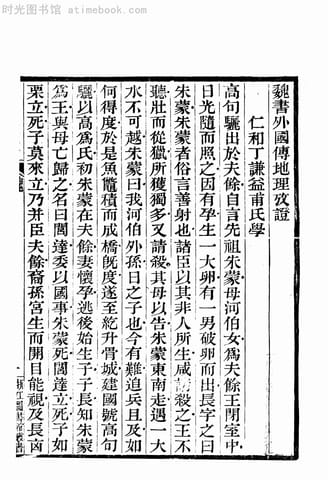 时光图书馆 atimebook.com
魏書外國傳地理攷證
仁和丁謙益甫氏學
高句驪出於夫餘自言先祖朱蒙母河伯女爲夫餘王閉室中
日光隨而照之因有孕生一大卵有一男破卵而出長字之曰
朱蒙朱蒙者俗言善射也諸臣以其非人所生咸請殺之王不
聽壯而從獵所獲獨多又請殺其母以告朱蒙東南走遇一大
水不可越朱蒙曰我河伯外孫日之子也今有難追兵且及如
何得度於是魚鼈積而成橋既度遂至紇升骨城建國號高句
驪以高爲氏初朱蒙在夫餘妻懷孕逃後始生子子長知朱蒙
爲王與母亡歸之名曰閭達委以國事朱蒙死閭達立死子如
栗立死子莫來立乃并臣夫餘裔孫宮生而開目能視及長凶
浙江圖書館叢書